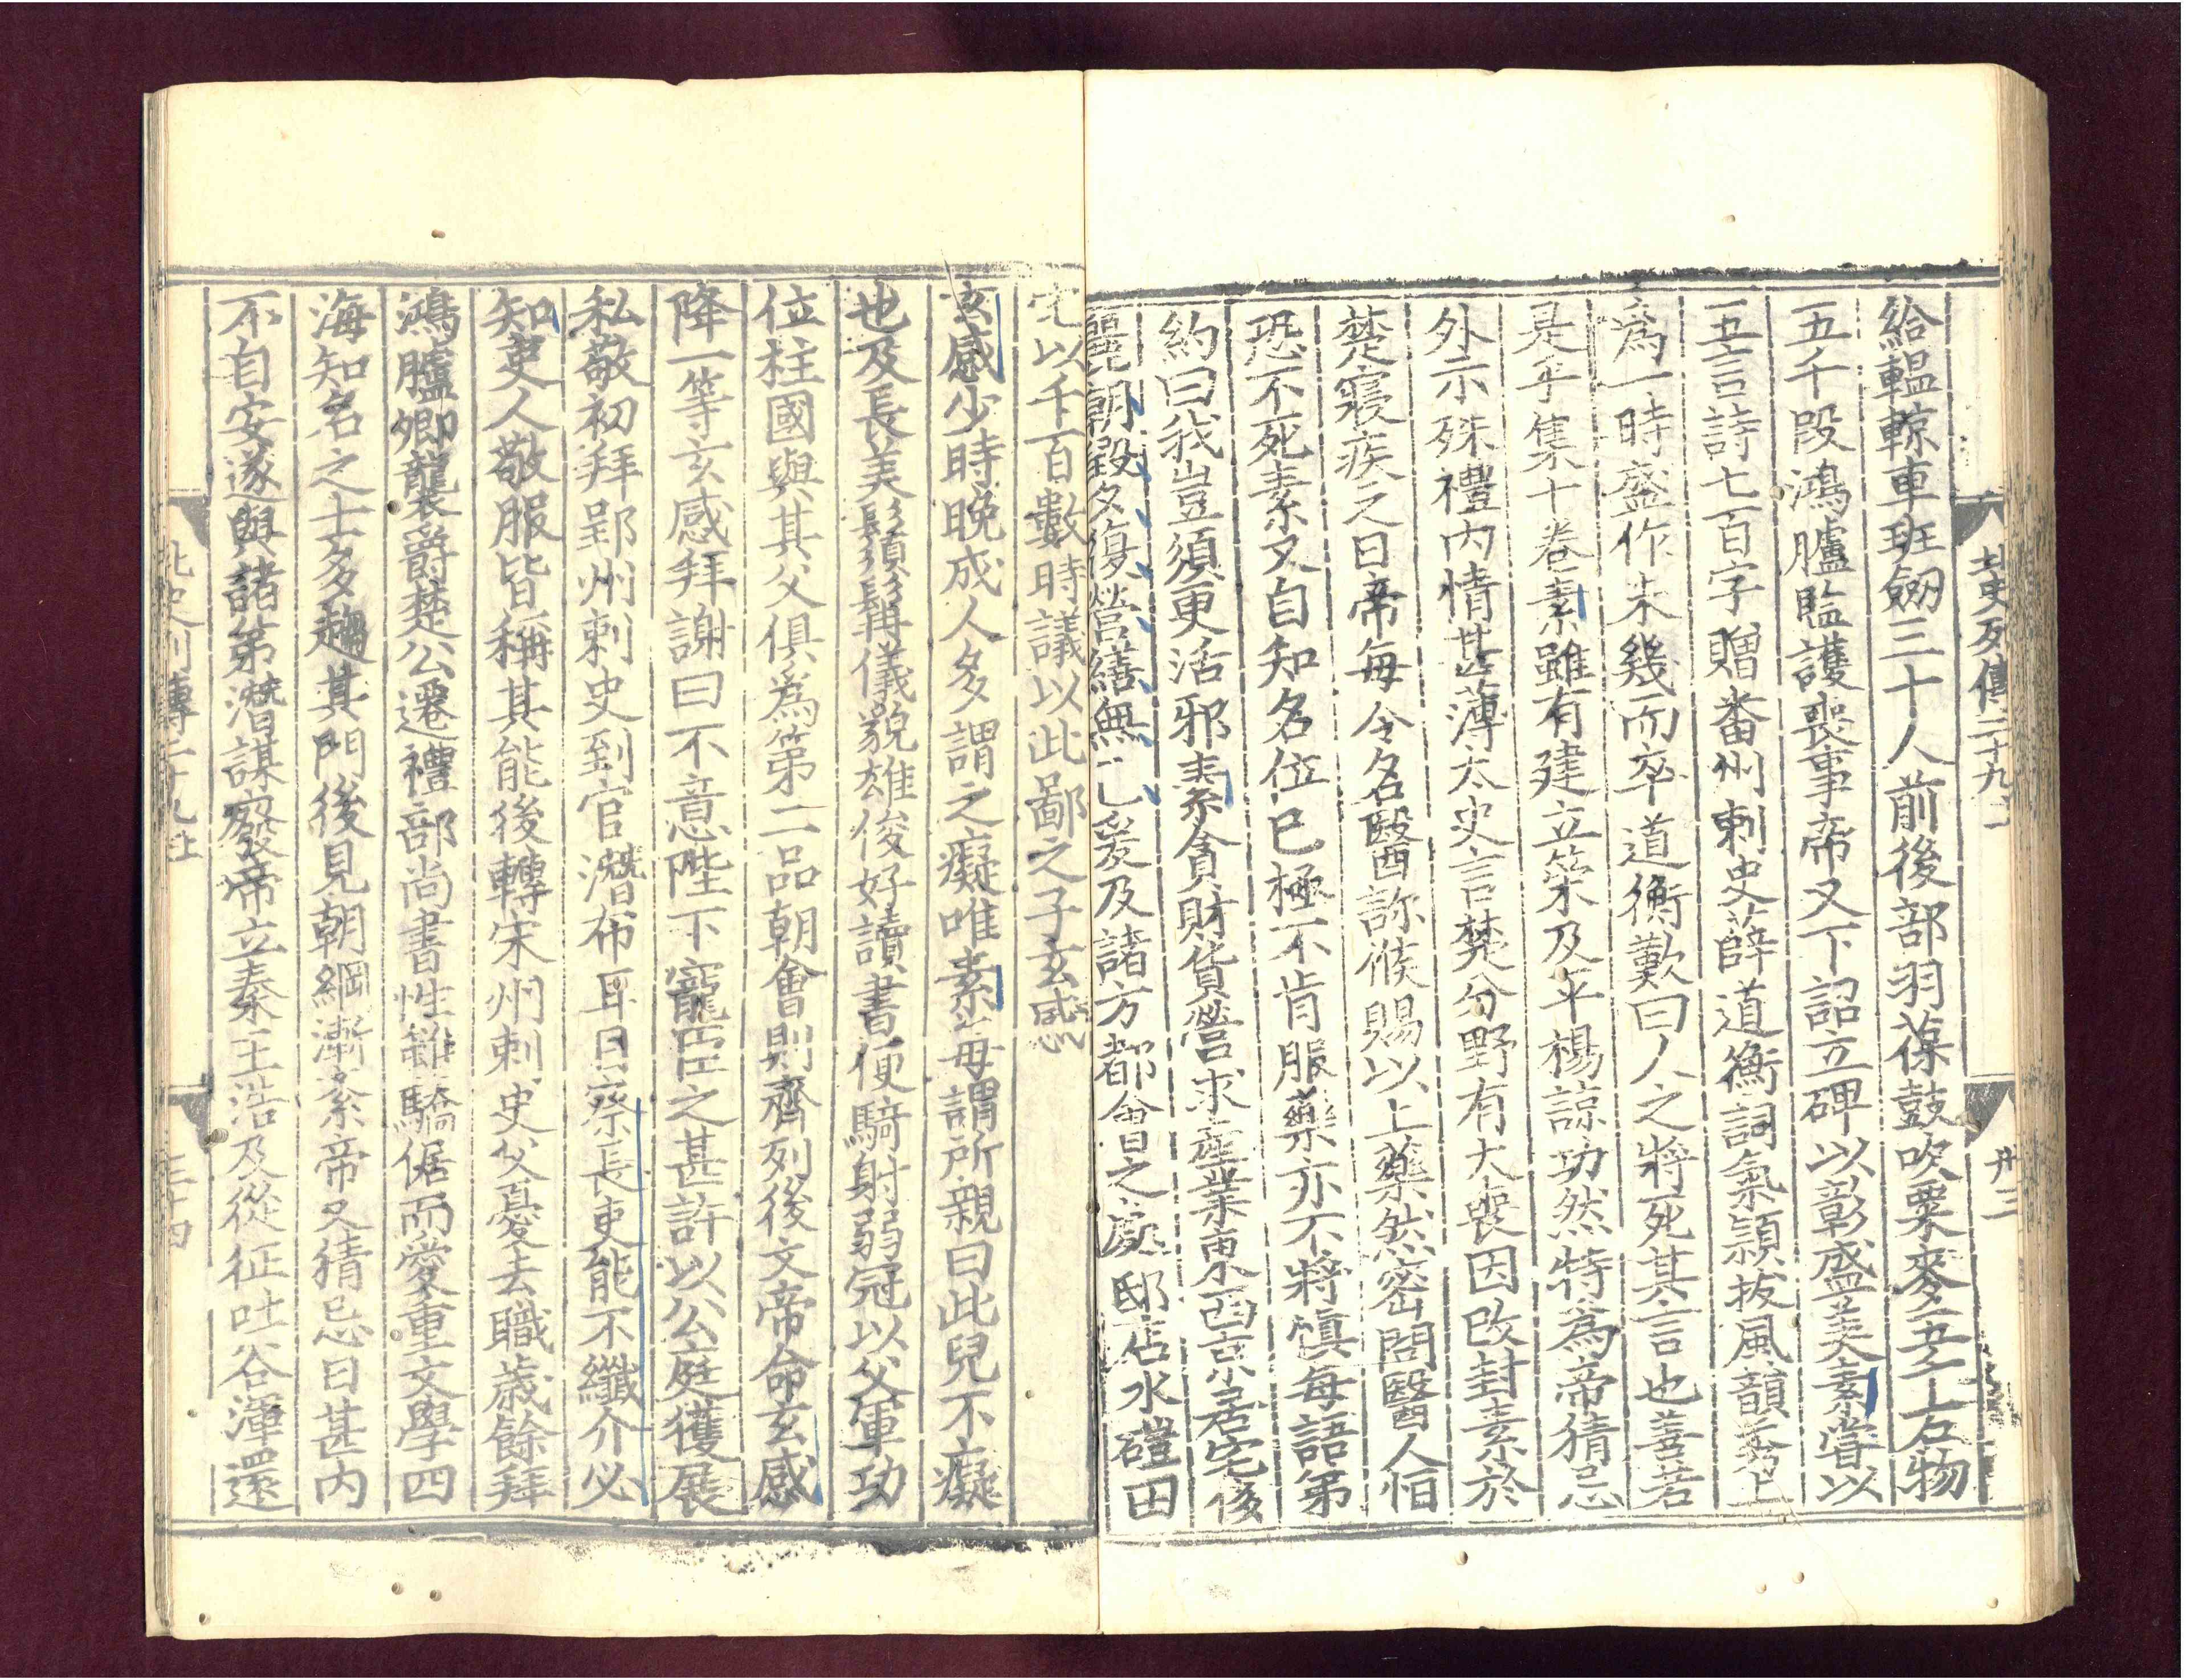 北史列傳二十九上
卅三
給轀輬車班劒三十人前後部羽葆鼓吹粟麥五千石物
五千段鴻臚監護喪事帝又下詔立碑以彰盛美素嘗以
五言詩七百字贈番州刺史薛道衡詞氣頴拔風韻秀上
爲一時盛作未幾而卒道衡歎曰人之將死其言也善若
是乎集十卷素雖有建立策及平楊諒功然特爲帝猜忌
外示殊禮内情甚薄太史言楚分野有大喪因改封素於
楚寢疾之日帝每令名醫診候賜以上藥然密問醫人恒
恐不死素又自知名位已極不肯服藥亦不將慎每語弟
約曰我豈須更活邪素貪財貨營求産業東西京居宅侈
麗朝毀夕復營繕無已爰及諸方都會之處邸店水磑田
宅以千百數時議以此鄙之子玄感
玄感少時晚成人多謂之癡唯素每謂所親曰此兒不癡
也及長美鬚髯儀貌雄俊好讀書便騎射弱冠以父軍功
位柱國與其父俱爲第二品朝會則齊列後文帝命玄感
降一等玄感拜謝曰不意陛下寵臣之甚許以公庭獲展
私敬初拜郢州刺史到官潛布耳目察長吏能不纖介必
知吏人敬服皆稱其能後轉宋州刺史父憂去職歲餘拜
鴻臚卿襲爵楚公遷禮部尚書性雖驕倨而愛重文學四
海知名之士多趨其門後見朝綱漸紊帝又猜忌日甚内
不自安遂與諸弟潛謀廢帝立秦王浩及從征吐谷渾還
北史列傳二十九上
三十四